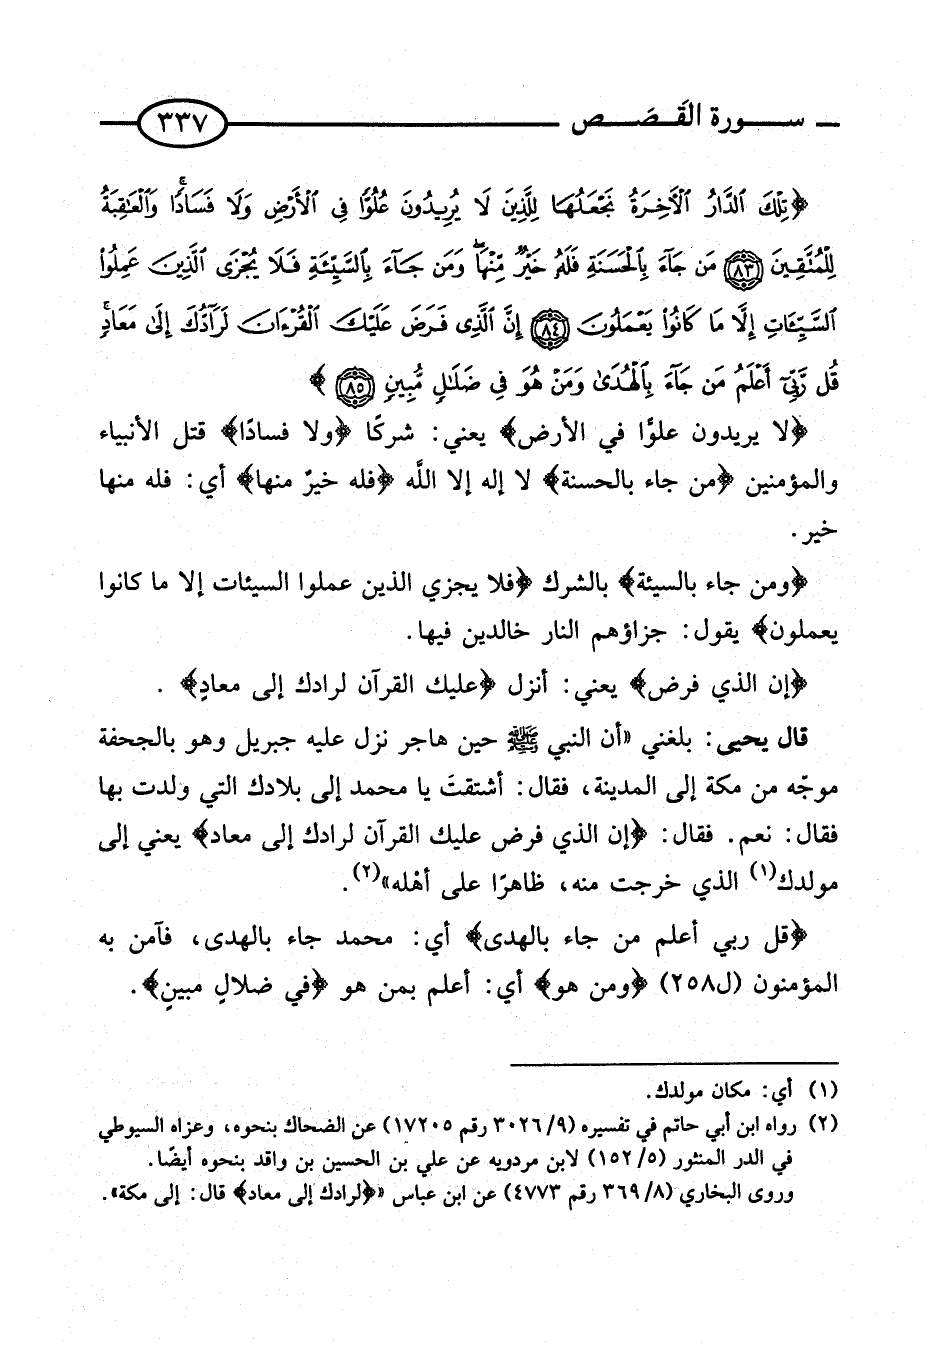 سورة القَصَص ٣٣٧
﴿تِلْكَ ٱلدَّارُ ٱلْأَخِرَةُ نَجْعَلُهَا لِلَّذِينَ لَا يُرِيدُونَ عُلُوًّا فِى ٱلْأَرْضِ وَلَا فَسَادًاۚ وَٱلْعَاقِبَةُ
لِلْمُتَّقِينَ ٨٣ مَن جَآءَ بِٱلْحَسَنَةِ فَلَهُۥ خَيْرٌ مِّنْهَاۖ وَمَن جَآءَ بِٱلسَّيِّئَةِ فَلَا يُجْزَى ٱلَّذِينَ عَمِلُوا۟
ٱلسَّيِّـَٔاتِ إِلَّا مَا كَانُوا۟ يَعْمَلُونَ ٨٤ إِنَّ ٱلَّذِى فَرَضَ عَلَيْكَ ٱلْقُرْءَانَ لَرَآدُّكَ إِلَىٰ مَعَادٍۚ
قُل رَّبِّىٓ أَعْلَمُ مَن جَآءَ بِٱلْهُدَىٰ وَمَنْ هُوَ فِى ضَلَـٰلٍ مُّبِينٍ ٨٥﴾
﴿لا يريدون علوًا في الأرض﴾ يعني: شركًا ﴿ولا فسادًا﴾ قتل الأنبياء
والمؤمنين ﴿من جاء بالحسنة﴾ لا إله إلا اللَّه ﴿فله خيرٌ منها﴾ أي: فله منها
خير.
﴿ومن جاء بالسيئة﴾ بالشرك ﴿فلا يجزي الذين عملوا السيئات إلا ما كانوا
يعملون﴾ يقول: جزاؤهم النار خالدين فيها.
﴿إن الذي فرض﴾ يعني: أنزل ﴿عليك القرآن لرادك إلى معادٍ﴾ .
قال يحيى: بلغني «أن النبي ﷺ حين هاجر نزل عليه جبريل وهو بالجحفة
موجّه من مكة إلى المدينة، فقال: أشتقتَ يا محمد إلى بلادك التي ولدت بها
فقال: نعم. فقال: ﴿إن الذي فرض عليك القرآن لرادك إلى معاد﴾ يعني إلى
مولدك(١) الذي خرجت منه، ظاهرًا على أهْله»(٢).
﴿قل ربي أعلم من جاء بالهدى﴾ أي: محمد جاء بالهدى، فآمن به
المؤمنون (ل٢٥٨) ﴿ومن هو﴾ أي: أعلم بمن هو ﴿في ضلالٍ مبينٍ﴾.
(١) أي: مكان مولدك.
(٢) رواه ابن أبي حاتم في تفسيره (٩/ ٣٠٢٦ رقم ١٧٢٠٥) عن الضحاك بنحوه، وعزاه السيوطي
في الدر المنثور (٥/ ١٥٢) لابن مردويه عن علي بن الحسين بن واقد بنحوه أيضًا.
وروى البخاري (٨/ ٣٦٩ رقم ٤٧٧٣) عن ابن عباس «﴿لرادك إلى معاد﴾ قال: إلى مكة».